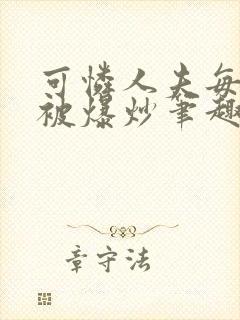 可怜人夫每
被爆炒笔趣
章守法